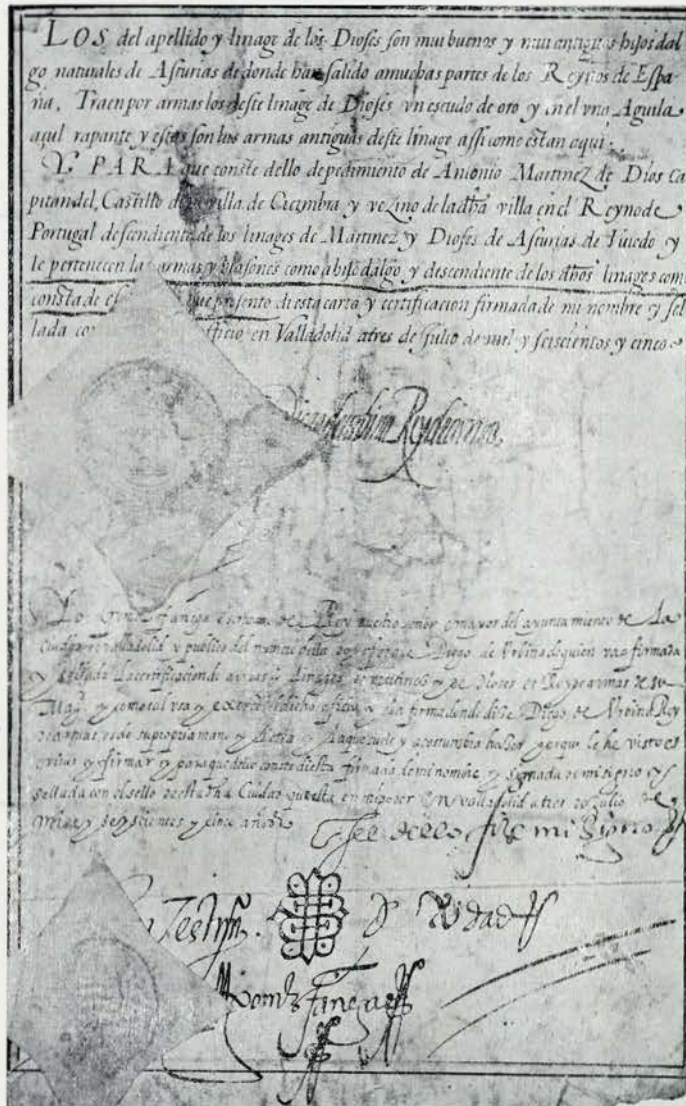 LOS del apellido y linage de los Dioses son mui buenos y mui antiguos hijos dal
go naturales de Asturias de donde han salido a muchas partes de los Reynos de Espa
ña. Traen por armas los deste linage de Dioses vn escudo de oro y en el vna Aguila
açul rapante y estas son las armas antiguas deste linage assi como estan aqui.
Y PARA que conste dello de pedimiento de Antonio Martinez de Dios Ca
pitan del Castillo de la villa de Cicimbra y vezino de la dha villa en el Reyno de
Portugal descendiente de los linages de Martinez y Dioses de Asturias de Viedo y
le pertenecen las armas y blasones como a hijo dalgo y descendiente de los dhos linages com
consta de que presento di esta carta y certificacion firmada de mi nombre y sel
lada co officio en Valladolid a tres de Julio de mil y seiscientos y cinco
Rey de armas
Yo escrivano del Rey nuestro señor y mayor del ayuntamiento de la
ciudad de valladolid y publico del Diego de Vrbina de quien va firmada
y sellada la certificacion de armas y linages de martinez y de dioses es Rey de armas de su
Magd y como tal vsa y exerce el dicho oficio y la firma donde dise Diego de Vrbina Rey
de armas es de su propria mano y letra y la que suele y acostumbra haser porque le he visto es
crivir y firmar y para que dello conste di esta firmada de mi nombre y signada de mi signo y
sellada con el sello de esta dha Ciudad que esta en mi poder en valladolid a tres de Julio de
mil y seyscientos y cinco años
fee dello fize mi signo
En Testimº. de Verdad
fanega